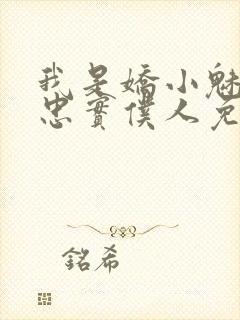 我是嬌小魅
忠實僕人免
銘希